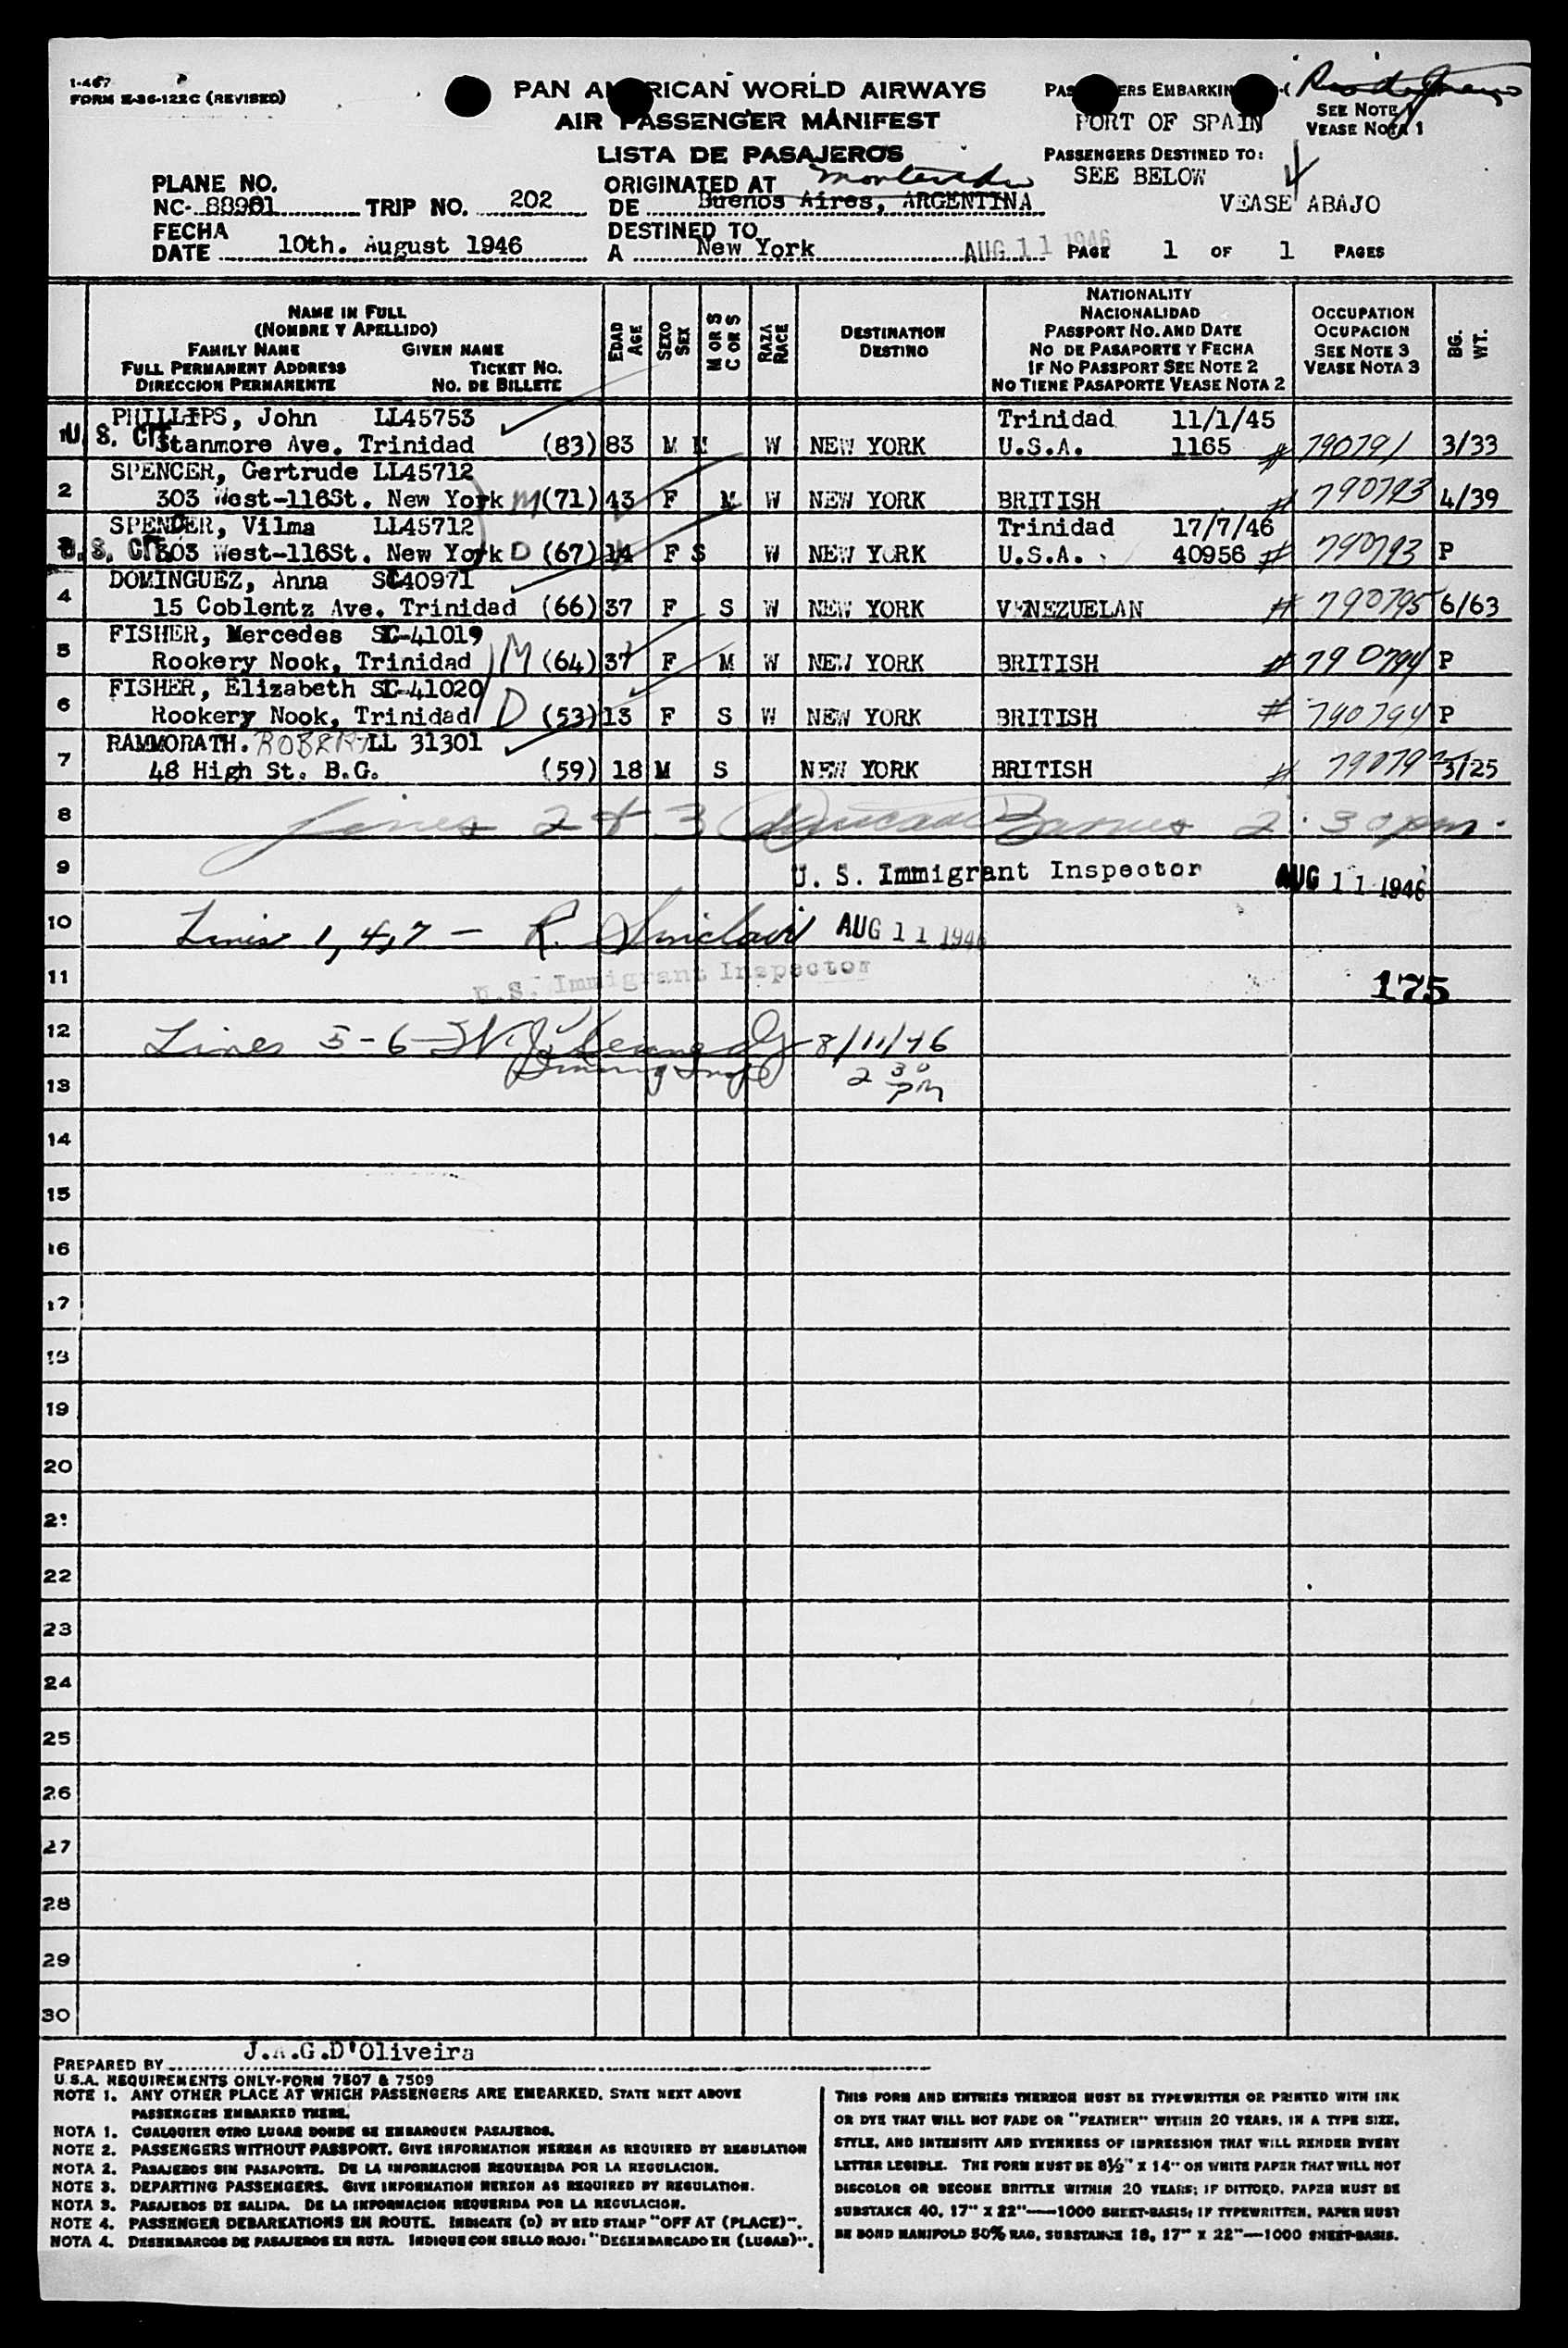 I-467
FORM E-36-122C (REVISED)
PAN AMERICAN WORLD AIRWAYS
AIR PASSENGER MANIFEST
LISTA DE PASAJEROS
PASSENGERS EMBARKING
PORT OF SPAIN
SEE NOTE 1
VEASE NOTA 1
PASSENGERS DESTINED TO:
SEE BELOW
VEASE ABAJO
PLANE NO.
NC- TRIP NO. 202
FECHA
DATE 10th. August 1946
ORIGINATED AT Montevideo
DE Buenos Aires, ARGENTINA
DESTINED TO
A New York
AUG 11 1946
PAGE 1 OF 1 PAGES
NAME IN FULL
(NOMBRE Y APELLIDO)
FAMILY NAME GIVEN NAME
FULL PERMANENT ADDRESS TICKET NO.
DIRECCION PERMANENTE NO. DE BILLETE
EDAD AGE
SEXO SEX
M OR S
C OR S
RAZA RACE
DESTINATION
DESTINO
NATIONALITY
NACIONALIDAD
PASSPORT NO. AND DATE
NO DE PASAPORTE Y FECHA
IF NO PASSPORT SEE NOTE 2
NO TIENE PASAPORTE VEASE NOTA 2
OCCUPATION
OCUPACION
SEE NOTE 3
VEASE NOTA 3
BG. WT.
PHILLIPS, John LL45753 Trinidad 11/1/45
1 U. S. CIT Stanmore Ave. Trinidad (83) 83 M M W NEW YORK U.S.A. 1165 # 790791 3/33
SPENCER, Gertrude LL45712
2 303 West-116St. New York M (71) 43 F M W NEW YORK BRITISH # 790793 4/39
SPENCER, Vilma LL45712 Trinidad 17/7/46
3 U. S. CIT 303 West-116St. New York D (67) 14 F S W NEW YORK U.S.A. 40956 # 790793 P
DOMINGUEZ, Anna SC40971
4 15 Coblentz Ave. Trinidad (66) 37 F S W NEW YORK VENEZUELAN # 790795 6/63
FISHER, Mercedes SC-41019
5 Rookery Nook, Trinidad M (64) 37 F M W NEW YORK BRITISH # 790794 P
FISHER, Elizabeth SC-41020
6 Rookery Nook, Trinidad D (53) 13 F S W NEW YORK BRITISH # 790794 P
RAMMORATH. ROBERT LL 31301
7 48 High St. B.G. (59) 18 M S NEW YORK BRITISH # 79079 3/25
8 Lines 2 & 3 Barnes 2:30 pm.
9 U. S. Immigrant Inspector AUG 11 1946
10 Lines 1, 4, 7 - R. Sinclair AUG 11 1946
U.S. Immigrant Inspector
11 175
12 Lines 5-6 Kennedy 8/11/46
13 2 30 PM
14
15
16
17
18
19
20
21
22
23
24
25
26
27
28
29
30
PREPARED BY J.A.G.D'Oliveira
U.S.A. REQUIREMENTS ONLY-FORM 7507 & 7509
NOTE 1. ANY OTHER PLACE AT WHICH PASSENGERS ARE EMBARKED, STATE NEXT ABOVE
PASSENGERS EMBARKED THERE.
NOTA 1. CUALQUIER OTRO LUGAR DONDE SE EMBARQUEN PASAJEROS.
NOTE 2. PASSENGERS WITHOUT PASSPORT, GIVE INFORMATION HEREON AS REQUIRED BY REGULATION
NOTA 2. PASAJEROS SIN PASAPORTE. DE LA INFORMACION REQUERIDA POR LA REGULACION.
NOTE 3. DEPARTING PASSENGERS. GIVE INFORMATION HEREON AS REQUIRED BY REGULATION.
NOTA 3. PASAJEROS DE SALIDA. DE LA INFORMACION REQUERIDA POR LA REGULACION.
NOTE 4. PASSENGER DEBARKATIONS EN ROUTE. INDICATE (D) BY RED STAMP "OFF AT (PLACE)".
NOTA 4. DESEMBARCOS DE PASAJEROS EN RUTA. INDIQUE CON SELLO ROJO: "DESEMBARCADO EN (LUGAR)".
THIS FORM AND ENTRIES THEREON MUST BE TYPEWRITTEN OR PRINTED WITH INK
OR DYE THAT WILL NOT FADE OR "FEATHER" WITHIN 20 YEARS, IN A TYPE SIZE,
STYLE, AND INTENSITY AND EVENNESS OF IMPRESSION THAT WILL RENDER EVERY
LETTER LEGIBLE. THE FORM MUST BE 8½" X 14" ON WHITE PAPER THAT WILL NOT
DISCOLOR OR BECOME BRITTLE WITHIN 20 YEARS; IF DITTOED, PAPER MUST BE
SUBSTANCE 40, 17" X 22"—1000 SHEET-BASIS; IF TYPEWRITTEN, PAPER MUST
BE BOND MANIFOLD 50% RAG, SUBSTANCE 18, 17" X 22"—1000 SHEET-BASIS.